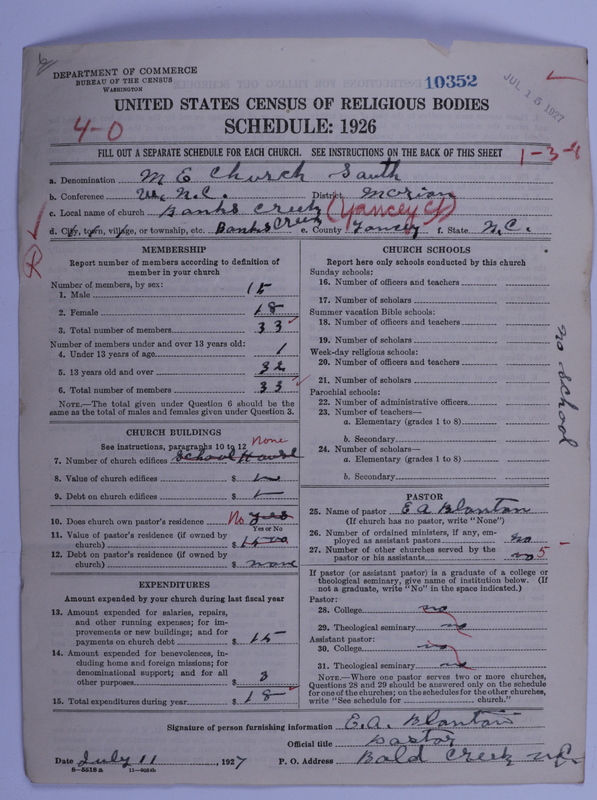 DEPARTMENT OF COMMERCE
BUREAU OF THE CENSUS
WASHINGTON
10352
JUL 15 1927
UNITED STATES CENSUS OF RELIGIOUS BODIES
SCHEDULE: 1926
4-0
FILL OUT A SEPARATE SCHEDULE FOR EACH CHURCH. SEE INSTRUCTIONS ON THE BACK OF THIS SHEET
1-3-4
a. Denomination M E Church South
b. Conference W. N.C. District Marion
c. Local name of church Banks Creek (Yancey Co)
d. City, town, village, or township, etc. Banks Creek e. County Yancey f. State N.C.
MEMBERSHIP
Report number of members according to definition of
member in your church
Number of members, by sex:
1. Male 15
2. Female 18
3. Total number of members 33
Number of members under and over 13 years old:
4. Under 13 years of age 1
5. 13 years old and over 32
6. Total number of members 33
NOTE.—The total given under Question 6 should be the
same as the total of males and females given under Question 3.
CHURCH BUILDINGS
See instructions, paragraphs 10 to 12
None
7. Number of church edifices School House
8. Value of church edifices $
9. Debt on church edifices $
10. Does church own pastor's residence No yes
Yes or No
11. Value of pastor's residence (if owned by
church) $ 1500
12. Debt on pastor's residence (if owned by
church) $ none
EXPENDITURES
Amount expended by your church during last fiscal year
13. Amount expended for salaries, repairs,
and other running expenses; for im-
provements or new buildings; and for
payments on church debt $ 15
14. Amount expended for benevolences, in-
cluding home and foreign missions; for
denominational support; and for all
other purposes $ 3
15. Total expenditures during year $ 18
CHURCH SCHOOLS
Report here only schools conducted by this church
Sunday schools:
16. Number of officers and teachers
17. Number of scholars
Summer vacation Bible schools:
18. Number of officers and teachers
19. Number of scholars
Week-day religious schools:
20. Number of officers and teachers
21. Number of scholars
Parochial schools:
22. Number of administrative officers
23. Number of teachers—
a. Elementary (grades 1 to 8)
b. Secondary
24. Number of scholars—
a. Elementary (grades 1 to 8)
b. Secondary
no School
PASTOR
25. Name of pastor E A Blanton
(If church has no pastor, write "None")
26. Number of ordained ministers, if any, em-
ployed as assistant pastors no
27. Number of other churches served by the
pastor or his assistants no 5
If pastor (or assistant pastor) is a graduate of a college or
theological seminary, give name of institution below. (If
not a graduate, write "No" in the space indicated.)
Pastor:
28. College no
29. Theological seminary no
Assistant pastor:
30. College no
31. Theological seminary no
NOTE.—Where one pastor serves two or more churches,
Questions 28 and 29 should be answered only on the schedule
for one of the churches; on the schedules for the other churches,
write "See schedule for church."
Signature of person furnishing information E.A. Blanton
Official title pastor
Date July 11, 1927 P. O. Address Bald Creek N.C.
8-5518 a 11-9024b